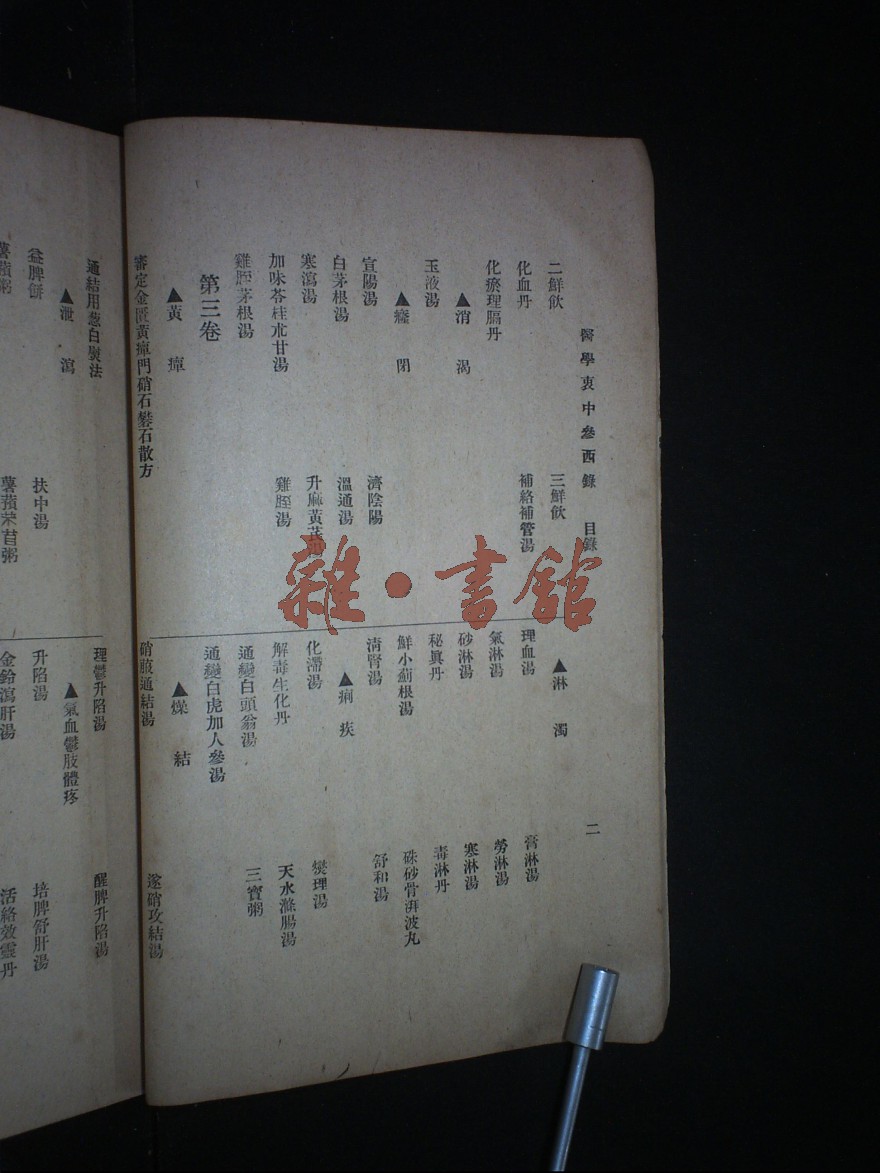 醫學衷中參西錄 目錄 二
二鮮飲 三鮮飲
化血丹 補絡補管湯
化瘀理膈丹
▲消渴
玉液湯
▲癃閉
宣陽湯 濟陰陽
白茅根湯 溫通湯
寒瀉湯 升麻黃芪
加味苓桂朮甘湯 雞脛湯
雞脛茅根湯
第三卷
▲黃疸
審定金匱黃疸門硝石礬石散方
▲淋濁
理血湯 膏淋湯
氣淋湯 勞淋湯
砂淋湯 寒淋湯
秘眞丹 毒淋丹
鮮小薊根湯 硃砂骨湃波丸
淸腎湯 舒和湯
▲痢疾
化滯湯 爕理湯
解毒生化丹 天水滌腸湯
通變白頭翁湯 三寶粥
通變白虎加人參湯
▲燥結
硝菔通結湯 遂硝攻結湯
通結用葱白熨法
▲泄瀉
益脾餅 扶中湯
薯蕷粥 薯蕷芣苢粥
理鬱升陷湯 醒脾升陷湯
▲氣血鬱肢體疼
升陷湯 培脾舒肝湯
金鈴瀉肝湯 活絡效靈丹
雜·書館